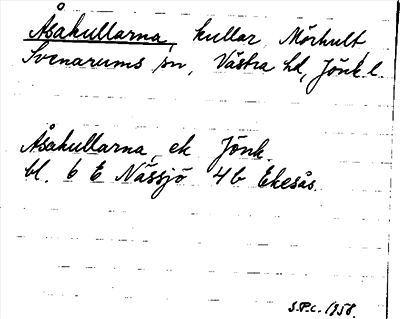 Åsakullarna, kullar, Mörhult,
Svenarums sn, Västra hd, Jönk. l.
Åsakullarna, ek Jönk.
bl. 6 E Nässjö 4 b Ekesås.
S.P.c. 1958.